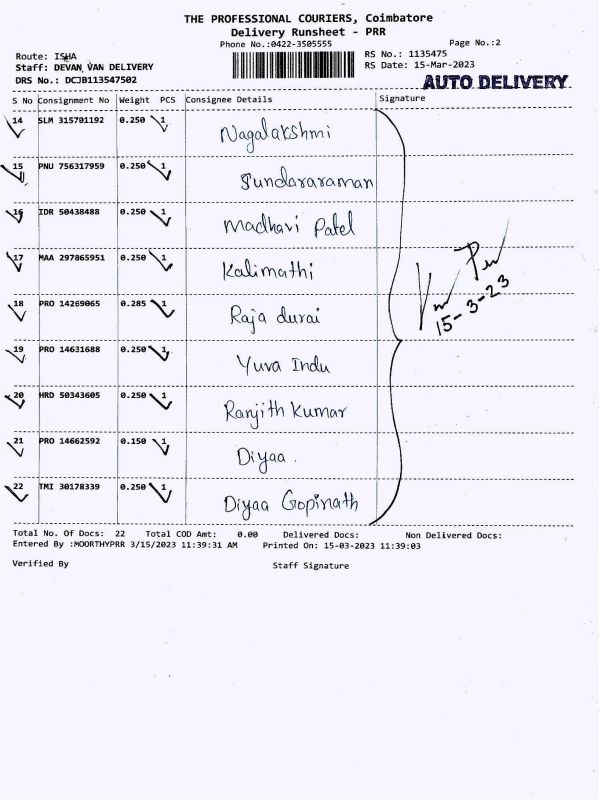 THE PROFESSIONAL COURIERS, Coimbatore
Delivery Runsheet - PRR
Phone No.:0422-3505555
Page No.:2
Route: ISHA
RS No.: 1135475
Staff: DEVAN VAN DELIVERY
RS Date: 15-Mar-2023
DRS No.: DCJB113547502
AUTO DELIVERY
S No Consignment No Weight PCS Consignee Details Signature
14 SLM 315701192 0.250 1 Nagalakshmi
15 PNU 756317959 0.250 1 Sundararaman
16 IDR 50438488 0.250 1 Madhavi Patel
17 MAA 297865951 0.250 1 Kalimathi
18 PRO 14269065 0.285 1 Raja durai
19 PRO 14631688 0.250 1 Yuva Indu
20 HRD 50343605 0.250 1 Ranjith Kumar
21 PRO 14662592 0.150 1 Diyaa.
22 TMI 30178339 0.250 1 Diyaa Gopinath
15-3-23
Total No. Of Docs: 22 Total COD Amt: 0.00 Delivered Docs: Non Delivered Docs:
Entered By :MOORTHYPRR 3/15/2023 11:39:31 AM Printed On: 15-03-2023 11:39:03
Verified By Staff Signature